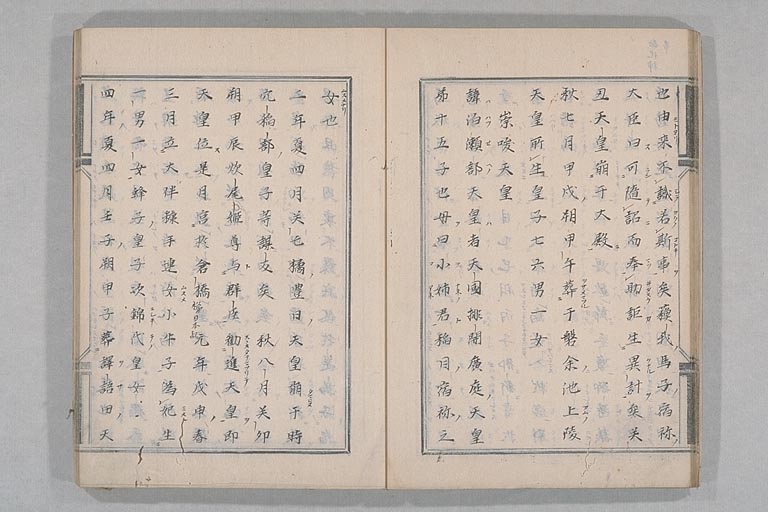 也由来不識若斯事矣蘇我馬子宿祢
大臣曰可隨詔而奉助詎生異計矣癸
丑天皇崩于大殿
秋七月甲戌朔甲午葬于磐余池上陵
天皇所生皇子七六男一女
崇峻天皇
諱泊瀬部天皇者天國排開廣庭天皇
第十五子也母曰小姉君稲目宿祢之
女也
二年夏四月癸 橘豊日天皇崩于時
穴穂部皇子等謀 矣秋八月癸卯
朔甲辰炊 姫尊与群臣勧進天皇即
天皇位是月宮於倉橋 元年戊申春
三月立大伴糠手連女小手子為妃生
一男一女蜂子皇子次錦代皇女
四年夏四月壬子朔甲子葬譯語田天